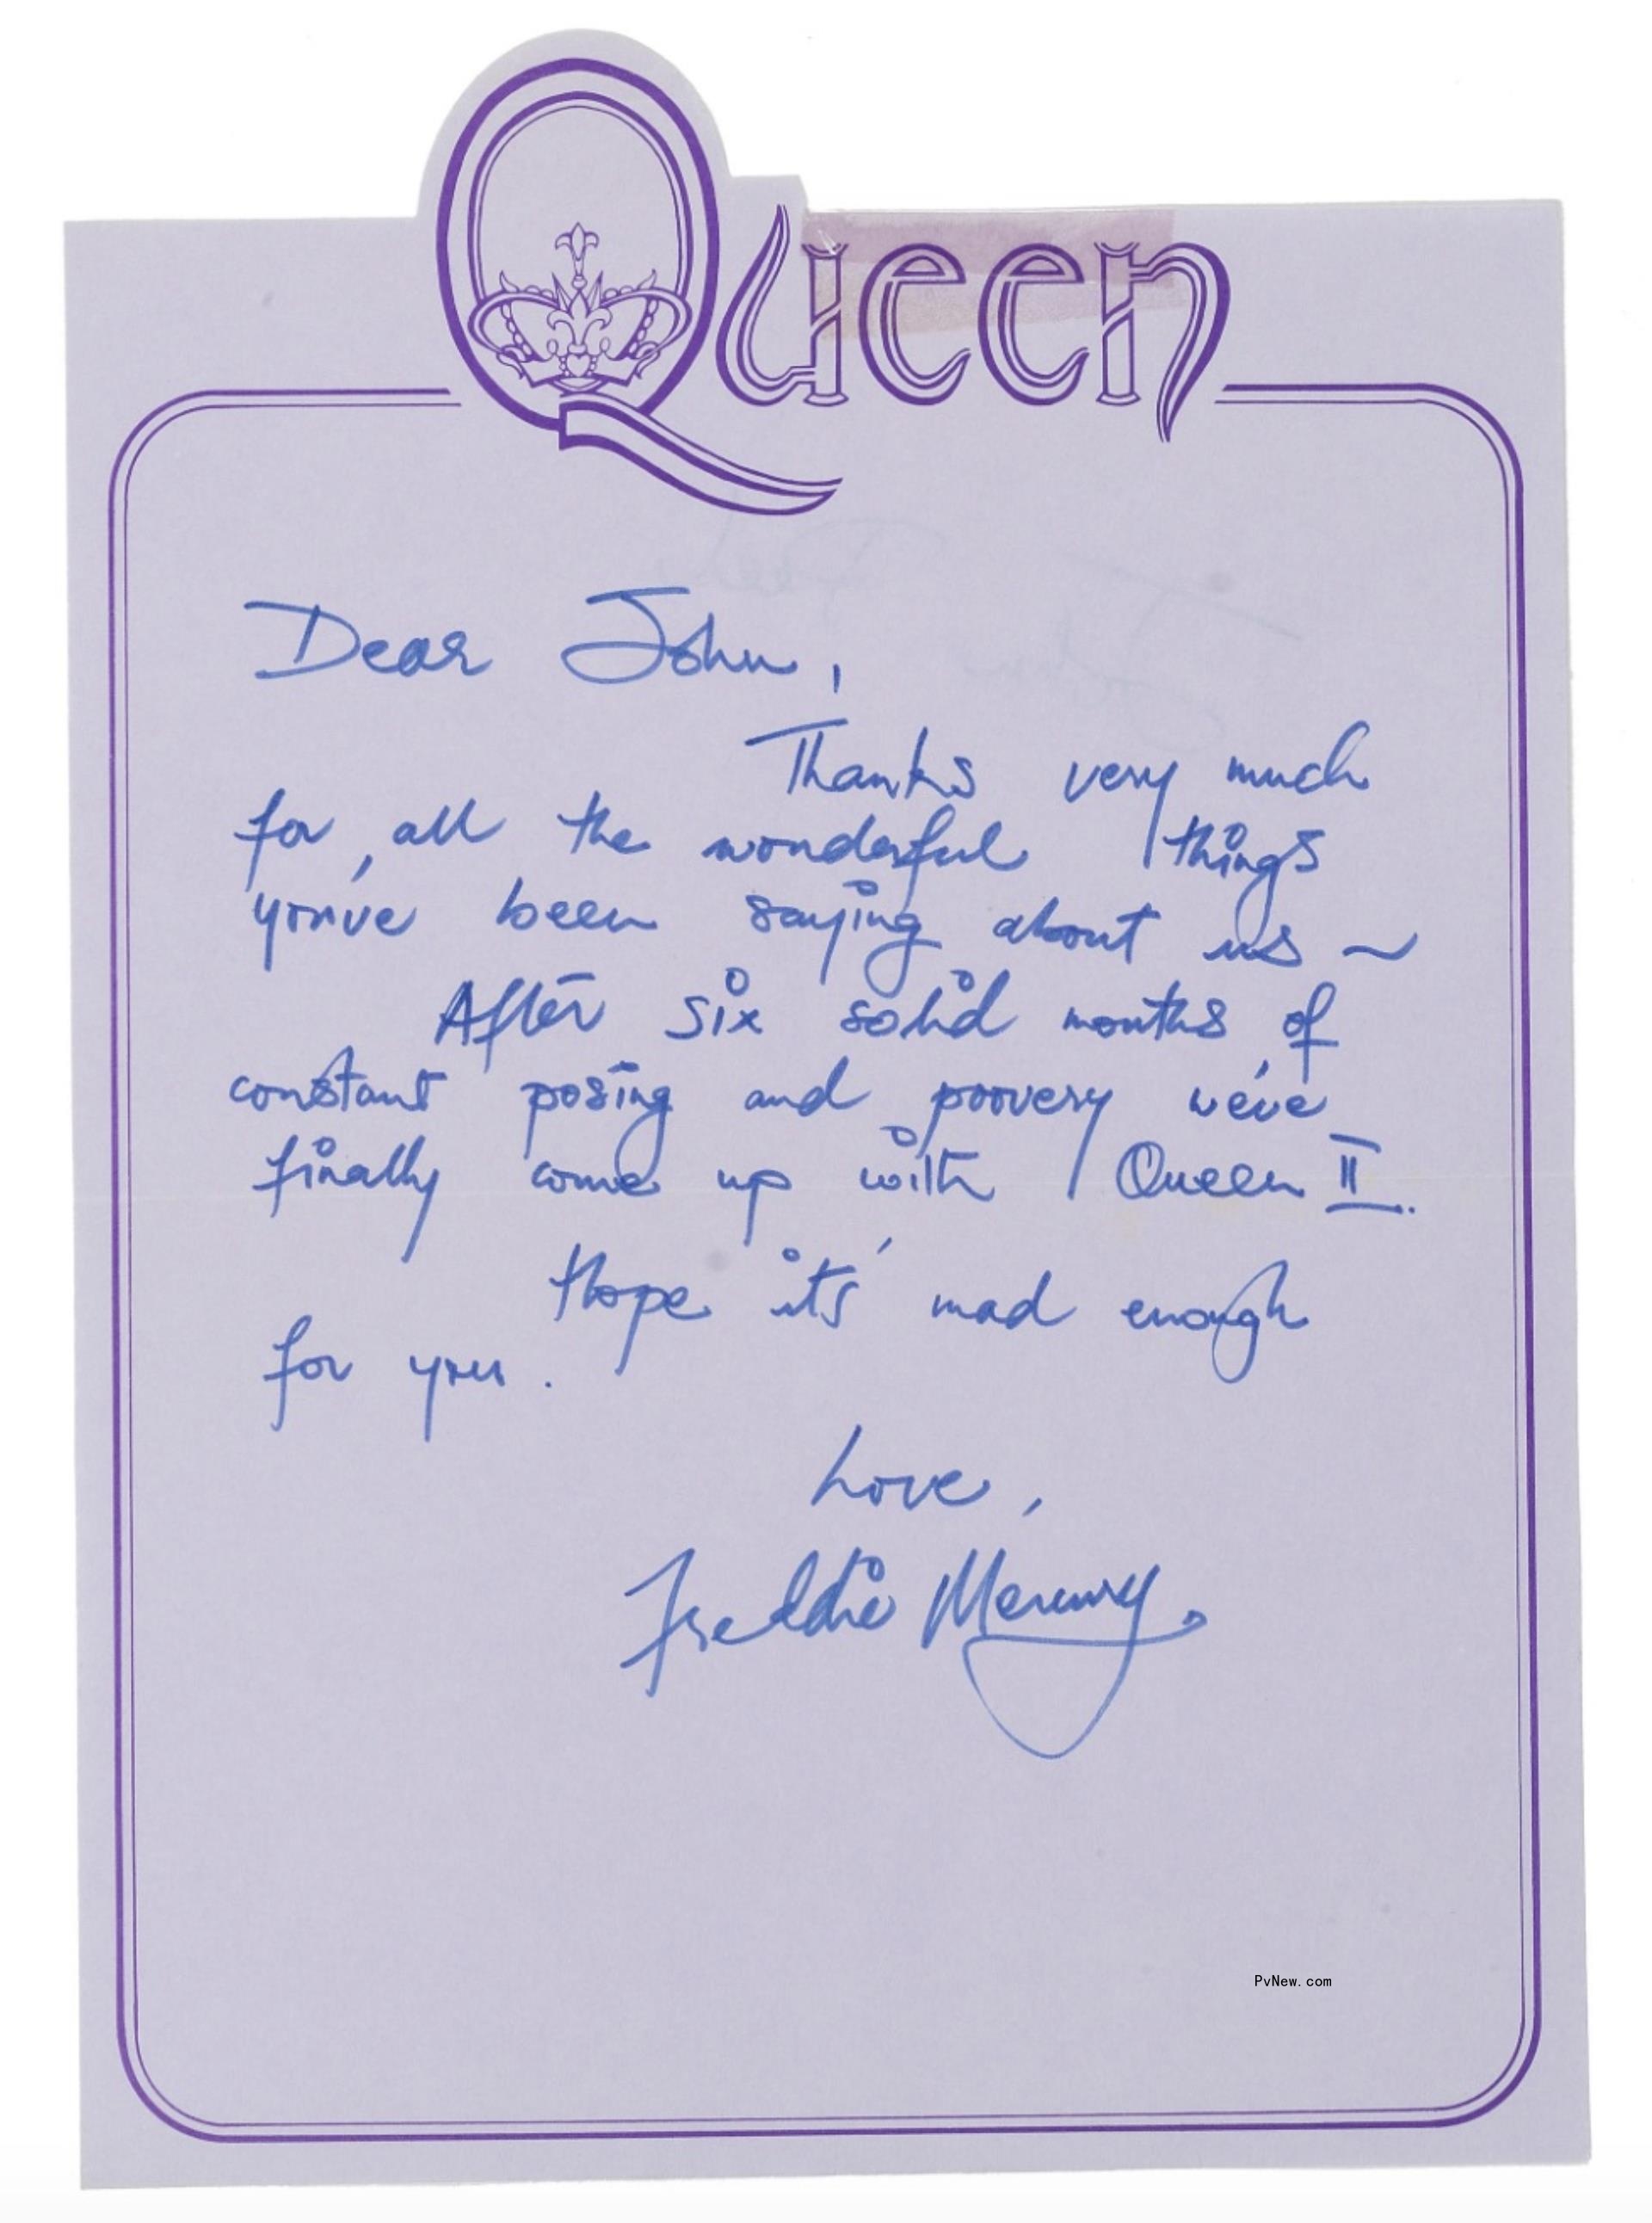 Queen
Dear John,
Thanks very much
for all the wonderful things
you've been saying about us ~
After six solid months of
constant posing and poovery we've
finally come up with Queen II.
Hope it's mad enough
for you.
Love,
Freddie Mercury.
PvNew.com